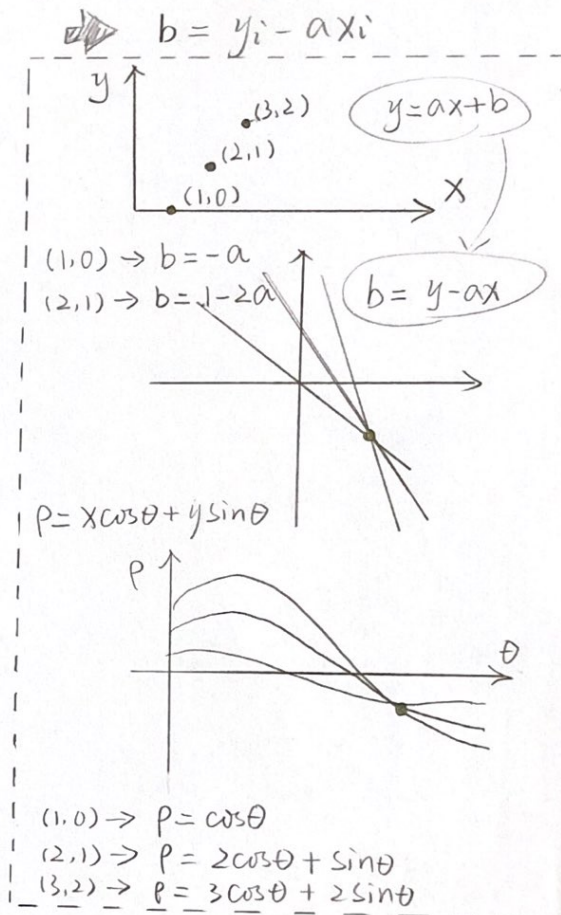 b = yi - axi
y
(3,2)
y=ax+b
(2,1)
(1,0)
x
(1,0) → b=-a
(2,1) → b=1-2a
b= y-ax
ρ=xcosθ+ysinθ
ρ
θ
(1,0) → ρ=cosθ
(2,1) → ρ= 2cosθ+sinθ
(3,2) → ρ= 3cosθ + 2sinθ